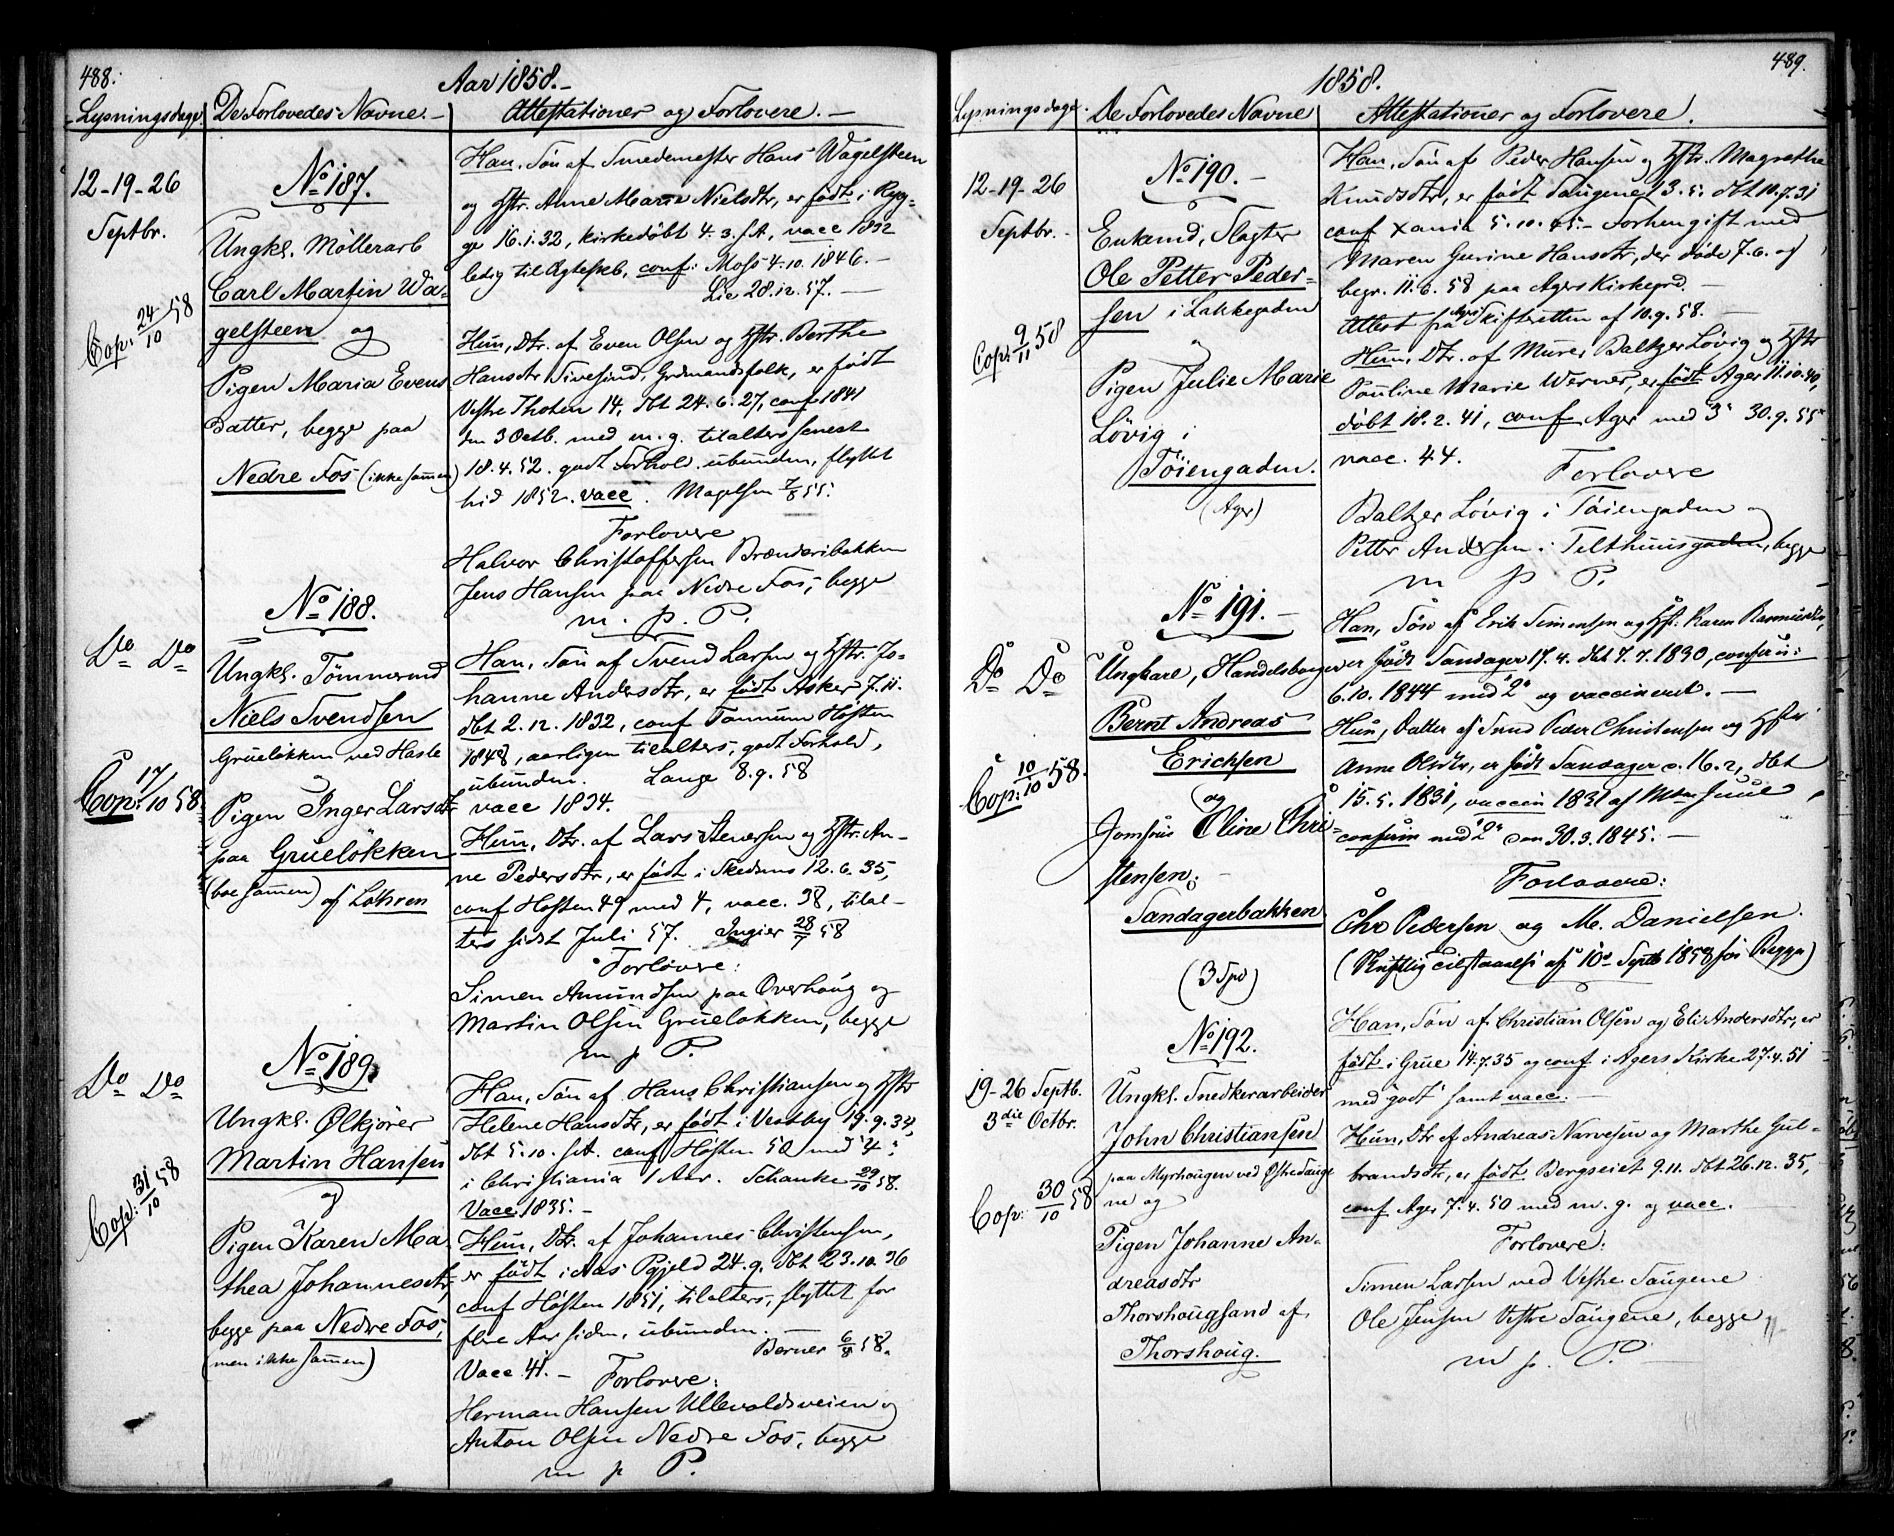 488.
Aar 1858.-
Lysningsdage.
De Forlovedes Navne.-
Attestationer og Forlovere.-
12-19-26
Septbr.
Cop: 24/10 58
No 187.
Ungkl. Möllerarb
Carl Martin Wa-
gelsteen og
Pigen Maria Evens
Datter, begge paa
Nedre Fos (ikke sammen)
Han, Sön af Smedemester Hans Wagelsteen
og Hstr. Anne Marie Nielsdtr, er födt i Ryg-
ge 16.1.32, kirkedöbt 4.3. s.A, vacc 1832
ledig til Ægteskb, conf: Moss 4.10.1846.-
Lie 28.12.57.-
Hun, Dtr. af Even Olsen og Hstr. Berthe
Hansdtr Sivesind, Grdmandsfolk, er födt
Vestre Thoten 14, dbt 24.6.27, conf 1841
den 3 Octb. med m.g. tilalters senest
18.4.52. godt Forhold. ubunden, flyttet
hid 1852. vacc. Magelsen 7/8 55.
Forlovere
Halvor Christoffersen Brænderibakken
Jens Hansen paa Nedre Fos, begge
m. p. P.
Do Do
Cop: 17/10 58.
No 188.
Ungkl. Tömmermd
Niels Svendsen
Grueløkken ved Hasle
Pigen Inger Larsdtr
paa Grueløkken
(boe sammen) af Löhren
Han, Sön af Svend Larsen og Hstr. Jo-
hanne Andersdtr, er födt Asker 7.11.
dbt 2.12.1832, conf Tanum Hösten
1848, aarligen tilalters, godt Forhold,
ubunden. Lange 8.9.58
vacc 1834.
Hun, Dtr. af Lars Steversen og Hstr. An-
ne Pedersdtr, er födt i Skedsmo 12.6.35,
conf Hösten 49 med 4, vacc. 38, tilal-
ters sidst Juli 57. Ingier 28/7 58
Forlovere:
Simen Amundsen paa Overhoug og
Martin Olsen Grueløkken, begge
m p P.
Do Do
Cop: 31/10 58
No 189.
Ungkl. Ølkjörer
Martin Hansen
og
Pigen Karen Ma
thea Johannesdtr,
begge paa Nedre Fos,
(men ikke sammen)
Han, Sön af Hans Christiansen og Hstr
Helene Hansdtr, er födt i Vestby 19.9.34,
dbt 5.10. s.A. conf Hösten 50 med "4":
i Christiania 1 Aar. Schanke 29/10 58.
Vacc. 1835.-
Hun, Dtr. af Johannes Christensen,
er födt i Aas Pgjeld 24.9. dbt 23.10.36
conf Hösten 1851, tilalters, flyttet for
flre Aar siden, ubunden.-
Berner 6/8 58.
Vacc. 41.- Forlovere:
Herman Hansen Ullevoldsveien og
Anton Olsen Nedre Fos, begge
m p P.
489.
1858.
Lysningsdage.
De Forlovedes Navne
Attestationer og Forlovere.
12-19-26
Septbr.-
Cop: 9/11 58
No 190.-
Enkemd, Slagter
Ole Petter Peder-
sen i Lakkegaden
og
Pigen Julie Marie
Lövig i
Töiengaden.
(Ager)
Han, Sön af Peder Hansen og Hstr. Magrethe
Knudsdtr, er födt Saugene 13.5. dbt 10.7.31
conf Xania 5.10.45.- Forhen gift med
Maren Gurine Hansdtr, der döde 7.6. og
begr. 11.6.58 paa Agers Kirkegrd.-
Attest fra Agers Skifteretten af 10.9.58.-
Hun, Dtr. af Murer Baltzer Lövig og Hstr
Pauline Marie Werner, er födt Ager 11.10.40,
döbt 18.2.41, conf Ager med "3" 30.9.55
vacc. 44.
Forlovere
Baltzer Lövig i Töiengaden og
Petter Andersen i Telthuusgaden, begge
m p P.
Do Do
Cop: 10/10 58.
No 191.-
Ungkarl, Handelsborger
Bernt Andreas
Erichsen
og
Jomfru Eline Chri-
stensen.
Sandagerbakken
(3 Spd)
Han, Sön af Erik Simensen og Hst: Karen Rasmusdtr,
er födt Sandager 17.4. dbt 7.7.1830, confirm:
6.10.1844 med "2" og vaccineret.-
Hun, Datter af Smed Peder Christensen og Hstr
Anne Olsdtr, er födt Sandager d. 16.2, dbt
15.5.1831, vaccin 1831 af Mdm Juul,
confirm med "2" den 30.3.1845.-
Forlovere:
Chr Pedersen og M. Danielsen.
(Skriftlig tilstaaelse af 10de Septb 1858 for Begge)
19-26 Septb.
3die Octbr.
Cop: 30/10 58
No 192.
Ungkl. Snedkerarbeider
John Christiansen
paa Myrhaugen ved Østre Sauge
ne og
Pigen Johanne An-
dreasdtr
Thorshougsand af
Thorshoug.
Han, Sön af Christian Olsen og Eli Andersdtr, er
födt i Grue 14.7.35 og conf i Agers Kirke 27.4.51
med godt samt vacc.-
Hun, Dtr af Andreas Narvesen og Marthe Gul-
brandsdtr, er födt Bergseiet 9.11. dbt 26.12.35,
conf Ager 7.4.50 med m.g. og vacc.
Forlovere:
Simen Larsen ved Vestre Saugene
Ole Jensen Vestre Saugene, begge
m p. P.